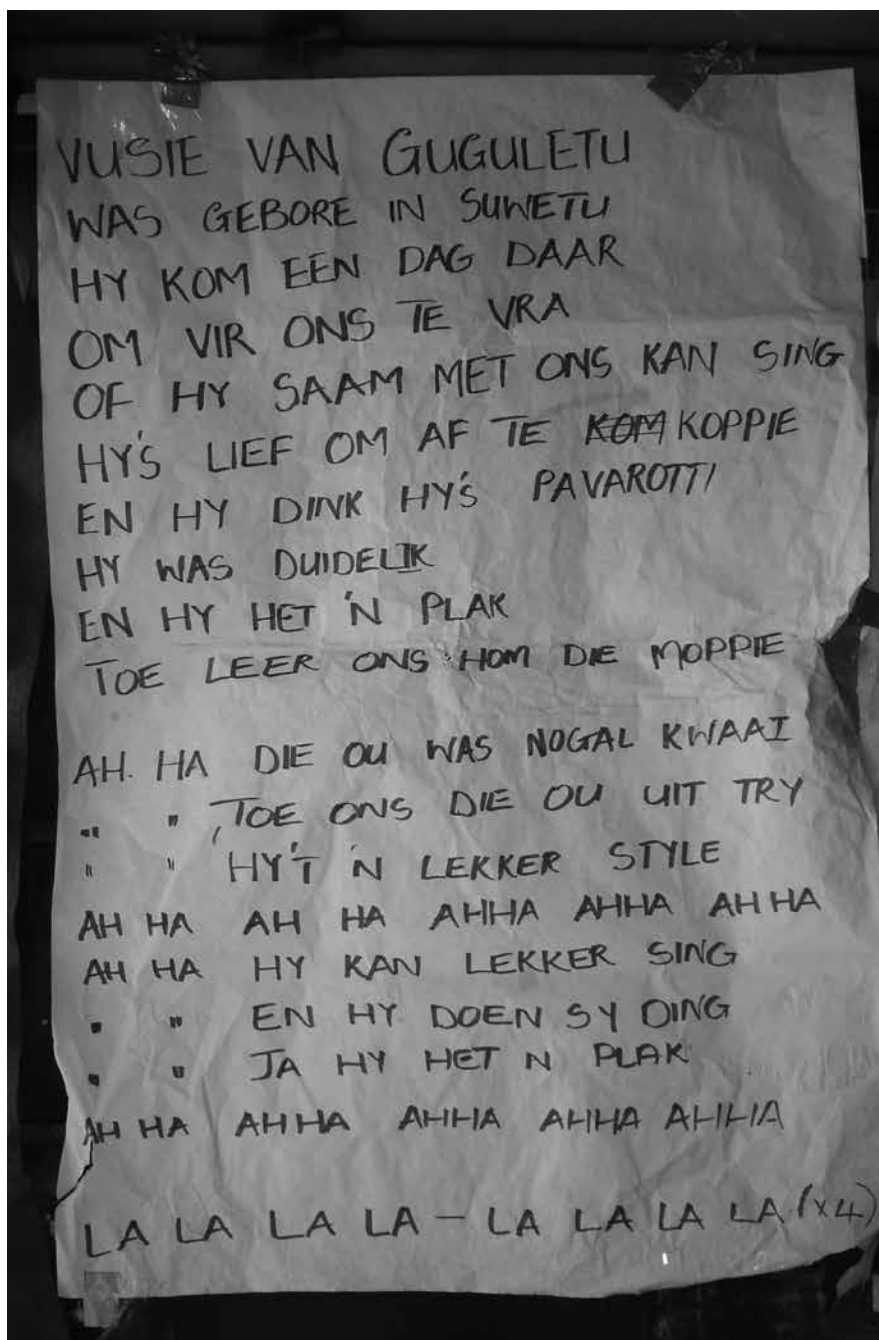 VUSIE VAN GUGULETU
WAS GEBORE IN SUWETU
HY KOM EEN DAG DAAR
OM VIR ONS TE VRA
OF HY SAAM MET ONS KAN SING
HY'S LIEF OM AF TE KOM KOPPIE
EN HY DINK HY'S PAVAROTTI
HY WAS DUIDELIK
EN HY HET 'N PLAK
TOE LEER ONS HOM DIE MOPPIE
AH. HA DIE OU WAS NOGAL KWAAI
" " TOE ONS DIE OU UIT TRY
" " HY'T 'N LEKKER STYLE
AH HA AH HA AHHA AHHA AH HA
AH HA HY KAN LEKKER SING
" " EN HY DOEN SY DING
" " JA HY HET N PLAK
AH HA AHHA AHHA AHHA AHHA
LA LA LA LA - LA LA LA LA (x4)